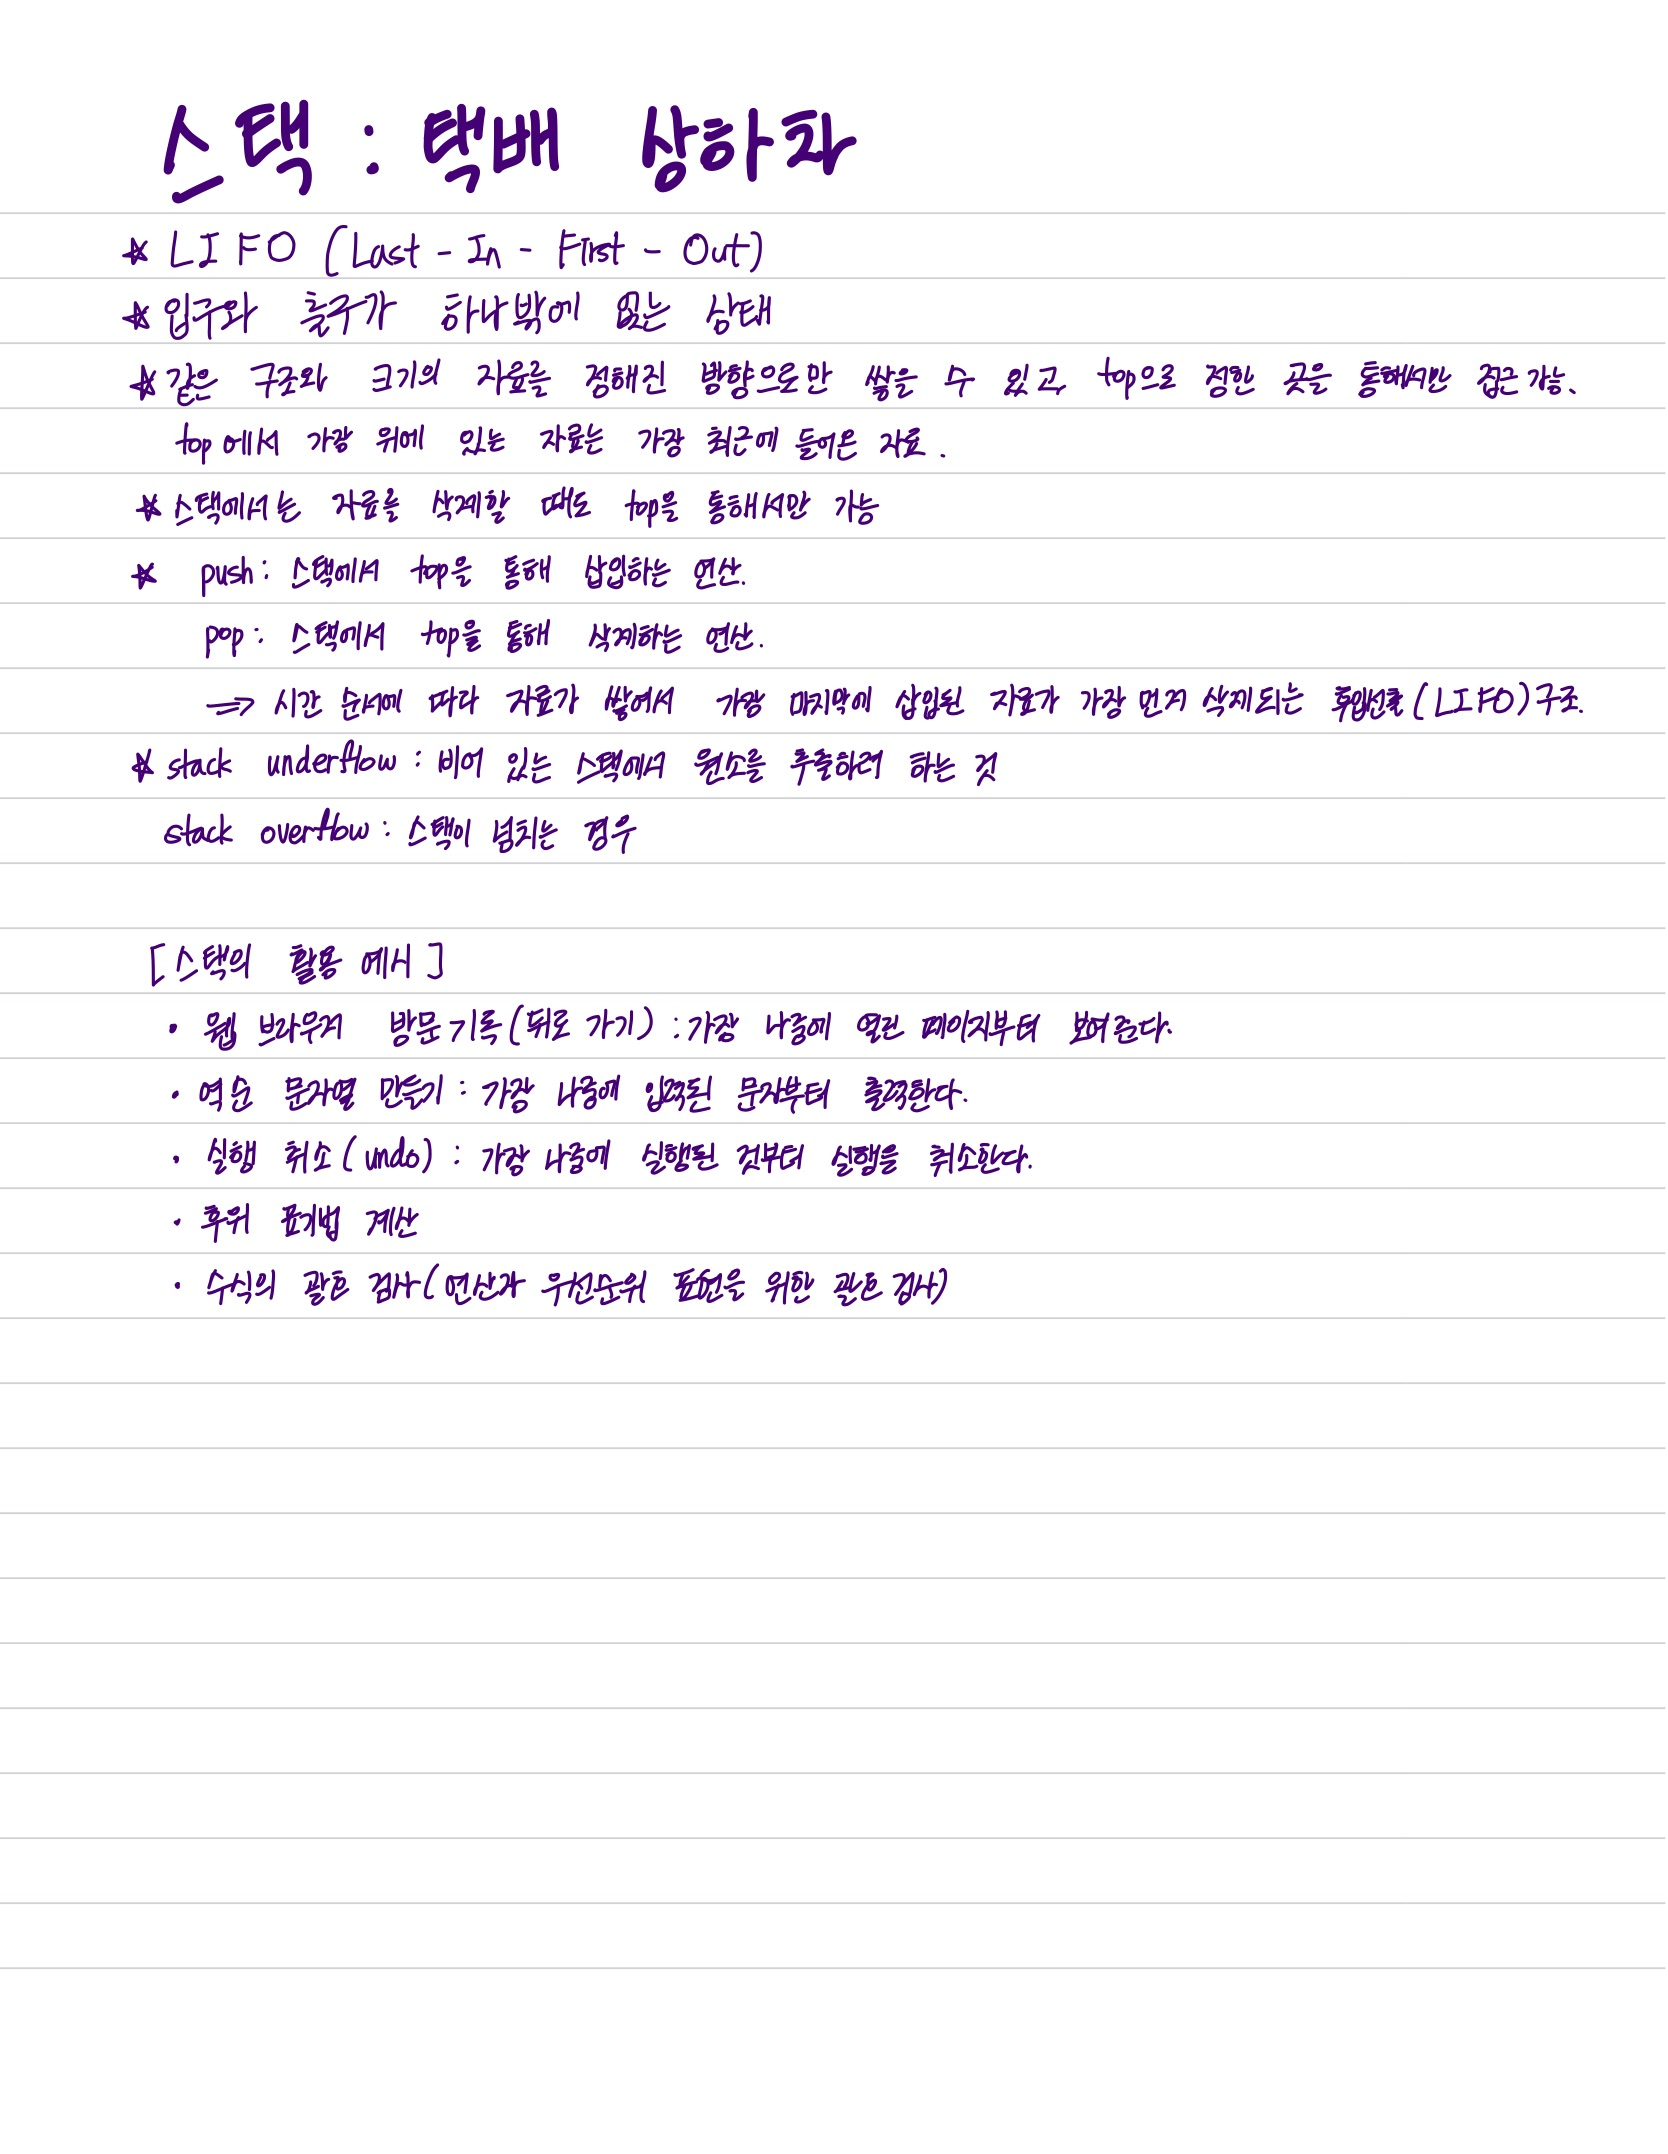 스택 : 택배 상하차
☆ LIFO (Last - In - First - Out)
☆ 입구와 출구가 하나밖에 없는 상태
☆ 같은 구조와 크기의 자료를 정해진 방향으로만 쌓을 수 있고, top으로 정한 곳을 통해서만 접근 가능.
top에서 가장 위에 있는 자료는 가장 최근에 들어온 자료.
☆ 스택에서는 자료를 삭제할 때도 top을 통해서만 가능
☆ push : 스택에서 top을 통해 삽입하는 연산.
pop : 스택에서 top을 통해 삭제하는 연산.
⇒ 시간 순서에 따라 자료가 쌓여서 가장 마지막에 삽입된 자료가 가장 먼저 삭제되는 후입선출(LIFO) 구조.
☆ stack underflow : 비어 있는 스택에서 원소를 추출하려 하는 것
stack overflow : 스택이 넘치는 경우
[스택의 활용 예시]
· 웹 브라우저 방문기록(뒤로 가기) : 가장 나중에 열린 페이지부터 보여준다.
· 역순 문자열 만들기 : 가장 나중에 입력된 문자부터 출력한다.
· 실행 취소(undo) : 가장 나중에 실행된 것부터 실행을 취소한다.
· 후위 표기법 계산
· 수식의 괄호 검사(연산자 우선순위 표현을 위한 괄호 검사)